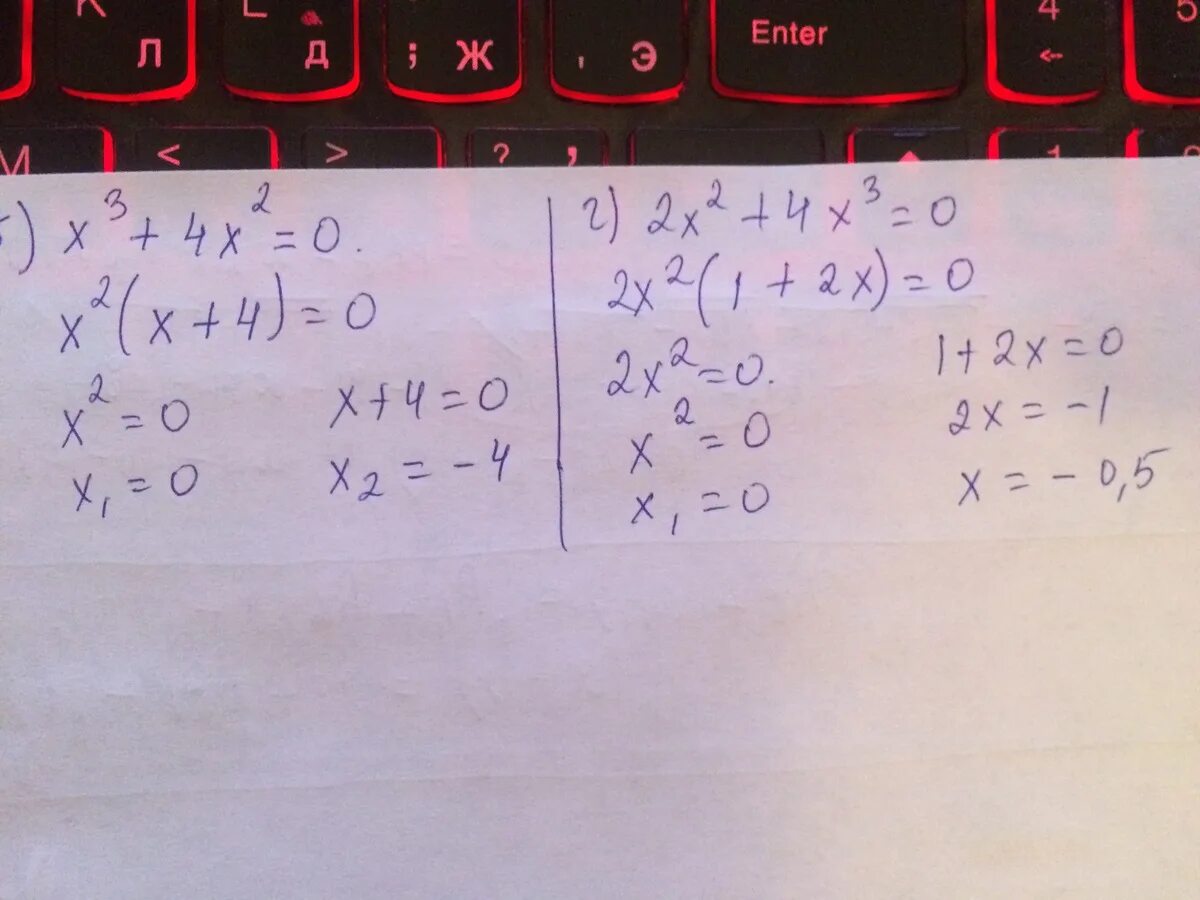 Л Д ; Ж , Э Enter 4 5
←
М < > ? , 1
б) x³ + 4x² = 0.
x²(x + 4) = 0
x² = 0 x + 4 = 0
x₁ = 0 x₂ = -4
г) 2x² + 4x³ = 0
2x²(1 + 2x) = 0
2x² = 0. 1 + 2x = 0
x² = 0 2x = -1
x₁ = 0 x = -0,5